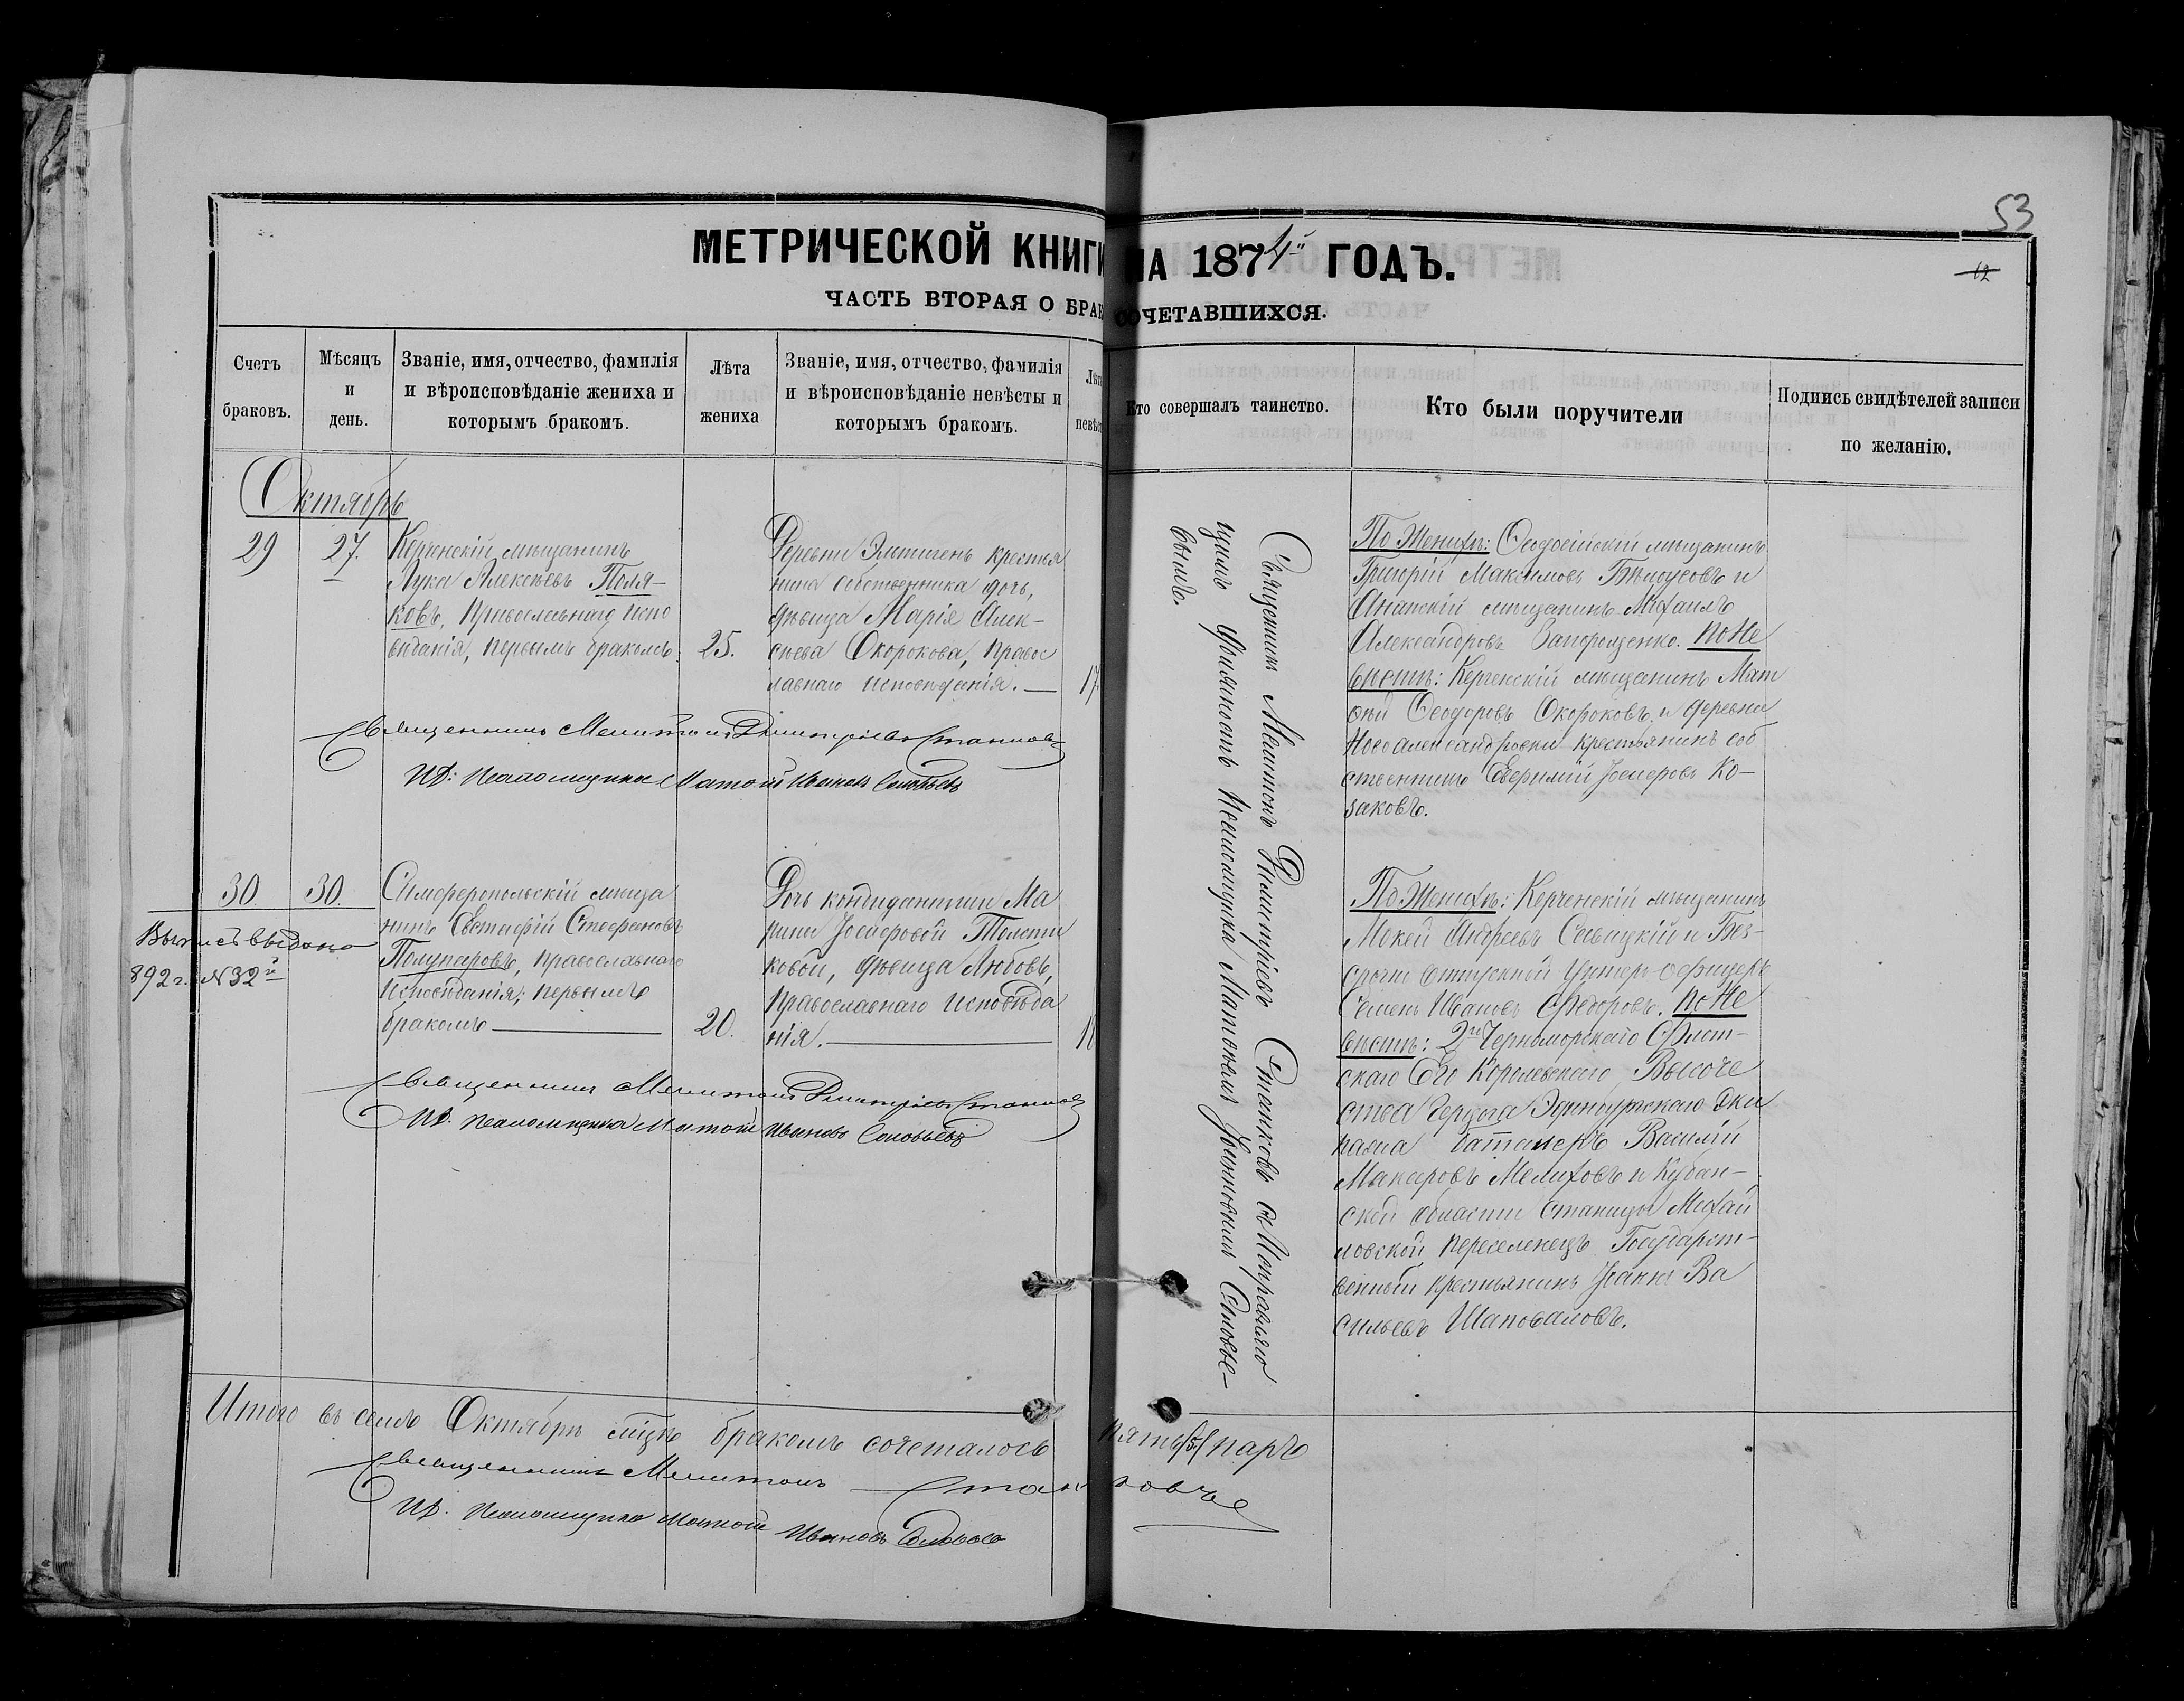 53
12
МЕТРИЧЕСКОЙ КНИГИ НА 1874й ГОДЪ.
ЧАСТЬ ВТОРАЯ О БРАКОСОЧЕТАВШИХСЯ.
Счетъ браковъ.
Мѣсяцъ и день.
Званіе, имя, отчество, фамилія и вѣроисповѣданіе жениха и которымъ бракомъ.
Лѣта жениха
Званіе, имя, отчество, фамилія и вѣроисповѣданіе невѣсты и которымъ бракомъ.
Лѣта невѣс
Кто совершалъ таинство.
Кто были поручители
Подпись свидѣтелей записи по желанію.
Октябрь
29
27.
Керченскій мѣщанинъ
Лука Алексѣевъ Поля-
ковъ, Православнаго Испо
вѣданія, первымъ бракомъ.
25.
Деревни Элтигень крестья
нина собственника дочь,
дѣвица Марія Алек-
сѣева Окорокова, Правос
лавнаго исповѣданія.—
17.
Священникъ Мелитонъ Димитріевъ Станковъ
ИД: Псаломщика Матой Ивановъ Соловьевъ
По Женихѣ: Ѳеодосійскій мѣщанинъ
Григорій Максимовъ Бѣлоусовъ и
Анапскій мѣщанинъ Михаилъ
Александровъ Запорощенко. По Не
вѣстѣ: Керченскій мѣщанинъ Мат
ѳей Ѳеодоровъ Окороковъ и деревни
Новоалександровки крестьянинъ соб
ственникъ Евфимій Іосифовъ Ко-
заковъ.
Священникъ Мелитонъ Димитріевъ Станковъ съ исправляю
щимъ должность Псаломщика Матоѳемъ Іоанновымъ Соловье-
вымъ.
30.
30.
Выпись выдана
892 г. №32й
Симферопольскій мѣща
нинъ Евстафій Стефановъ
Полупаровъ, православнаго
исповѣданія, первымъ
бракомъ
20.
Дочь кондидатши Ма
рины Іосифовой Толсти
ковой, дѣвица Любовь,
Православнаго исповѣда
нія.
Священникъ Мелитонъ Димитріевъ Станковъ
ИД. Псаломщика Матой Ивановъ Соловьевъ
По Женихѣ: Керченскій мѣщанинъ
Мокей Андреевъ Савицкій и Без-
срочно отпускный Унтеръ-офицеръ
Семенъ Ивановъ Ѳедоровъ. По Не
вѣстѣ: 2го Черноморскаго Флот-
скаго Его Королевскаго Высоче
ства Герцога Эдинбургскаго Эки
пажа баталеръ Василій
Макаровъ Мелиховъ и Кубан-
ской области станицы Михай
ловской переселенецъ Государст-
венный крестьянинъ Іоаннъ Ва
сильевъ Шаповаловъ.
Итого въ семъ Октябрѣ мѣцѣ бракомъ сочеталось пять /5/ паръ
Священникъ Мелитонъ Станковъ
ИД. Псаломщика Матой Ивановъ Соловьевъ